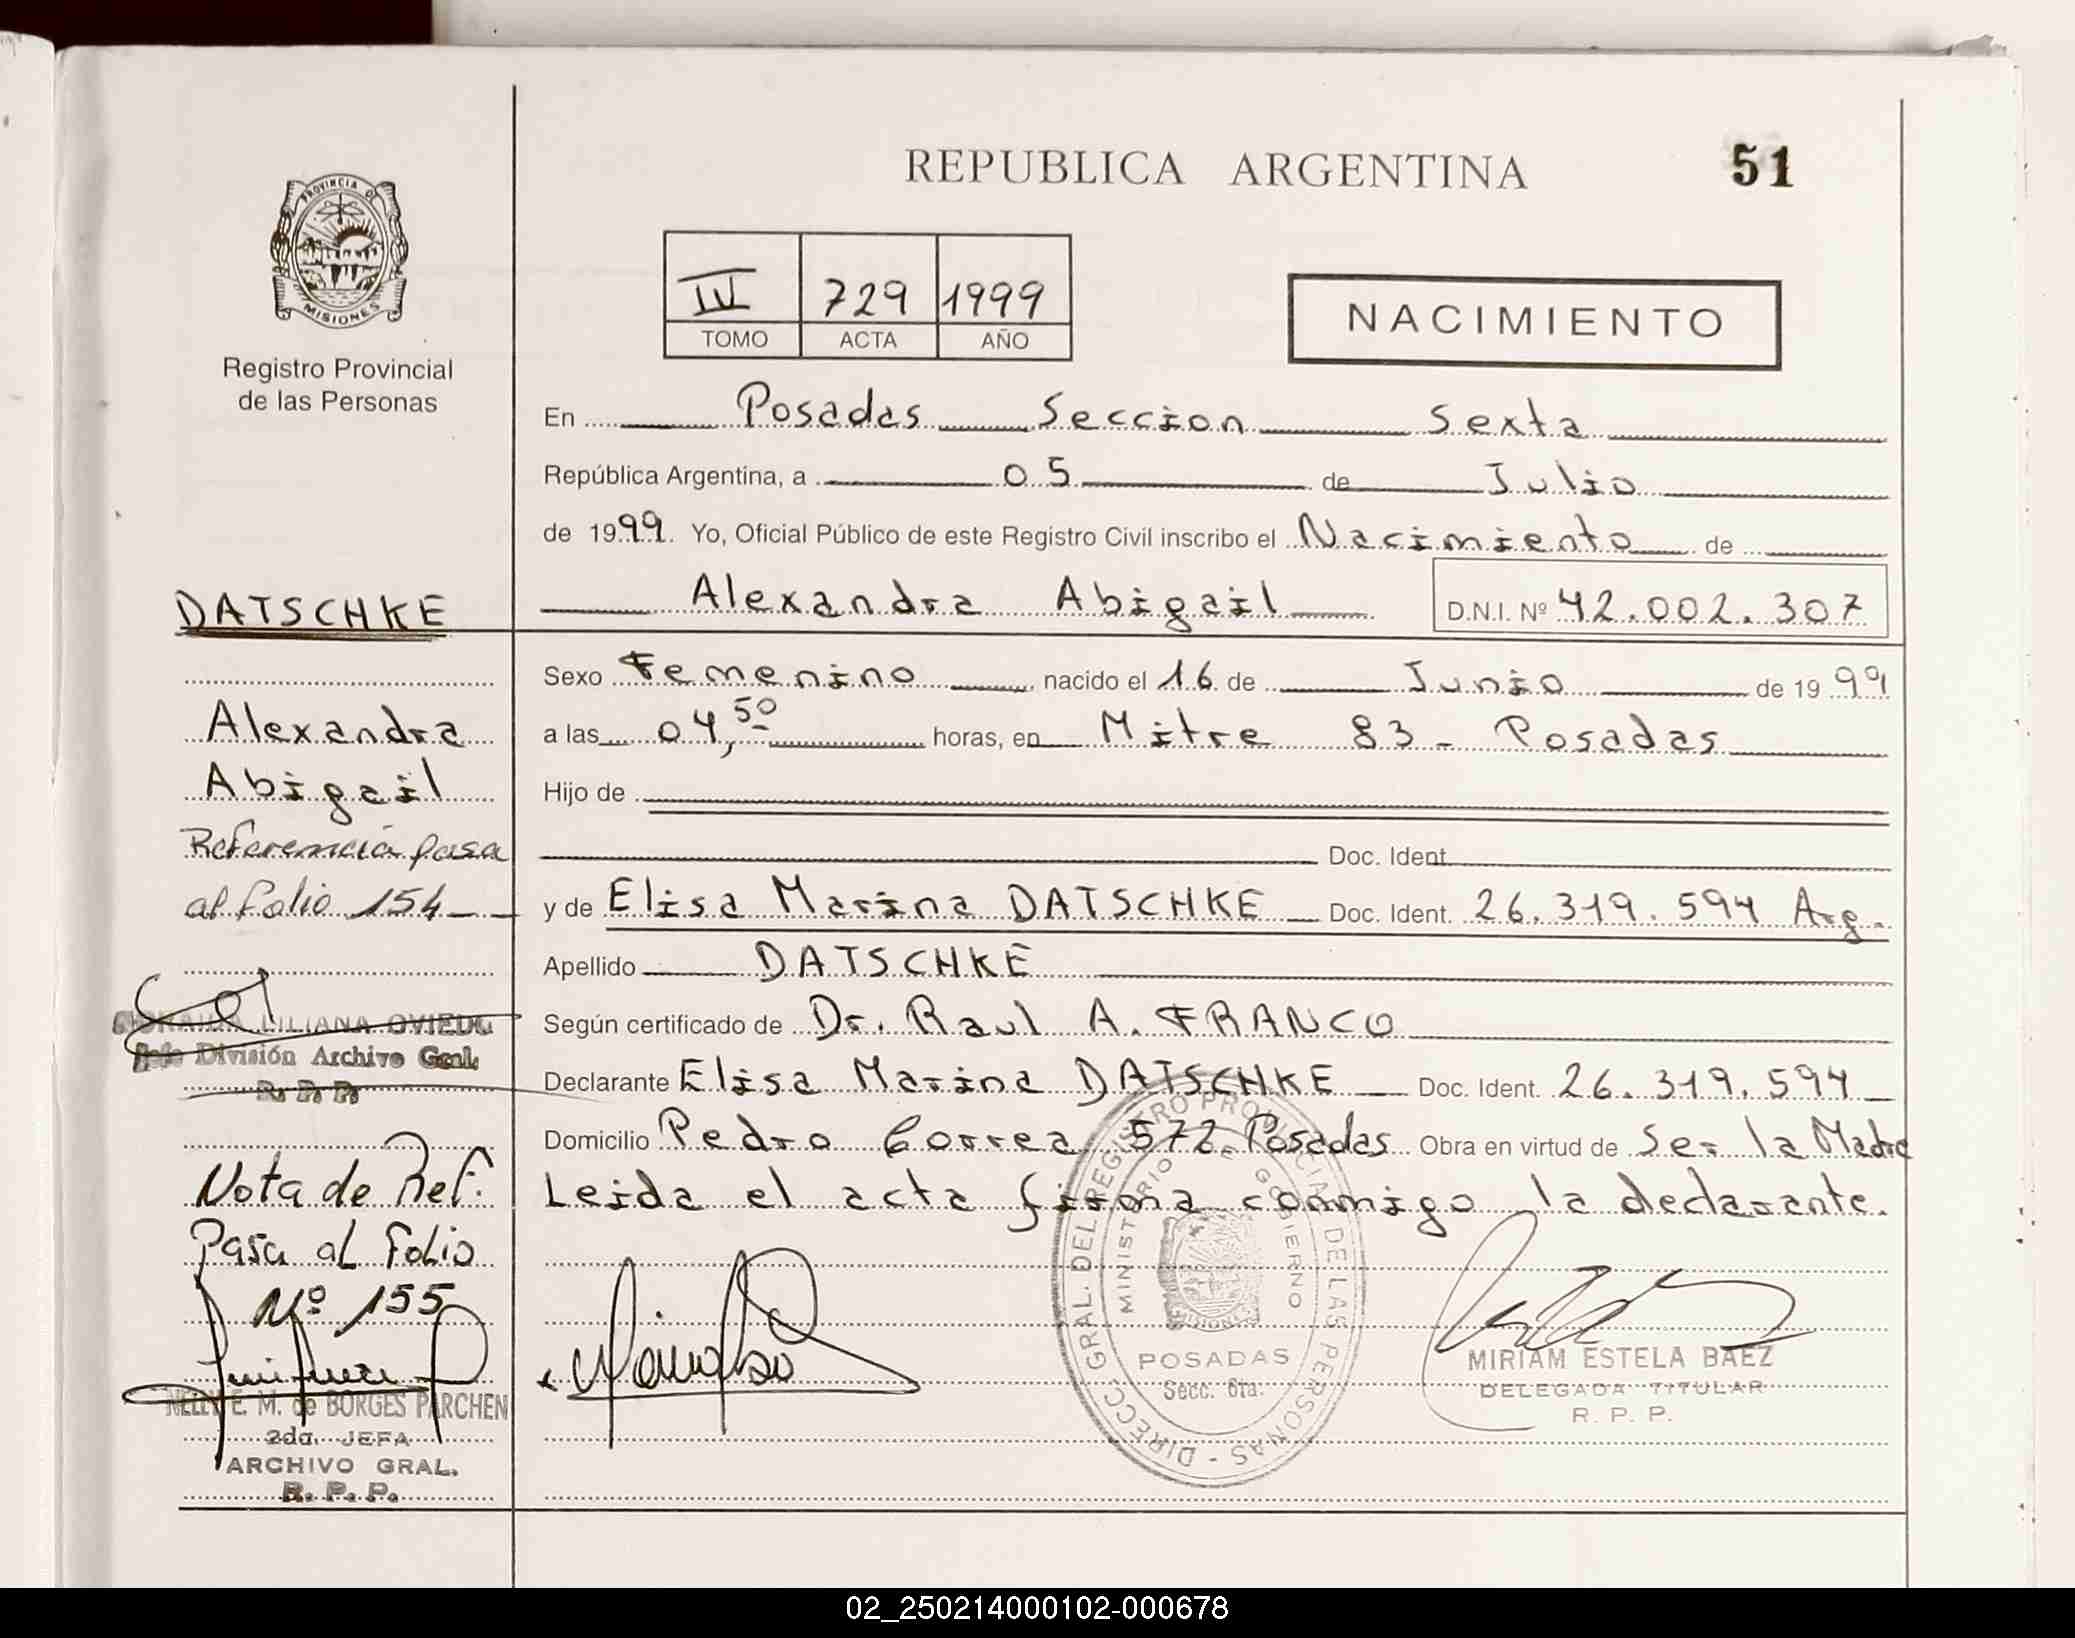 REPUBLICA ARGENTINA
51
PROVINCIA DE
MISIONES
Registro Provincial
de las Personas
IV 729 1999
TOMO ACTA AÑO
NACIMIENTO
En Posadas Seccion Sexta
República Argentina, a 05 de Julio
de 1999. Yo, Oficial Público de este Registro Civil inscribo el Nacimiento de
Alexandra Abigail D.N.I. Nº 42.002.307
Sexo Femenino, nacido el 16 de Junio de 1999
a las 04,50 horas, en Mitre 83 - Posadas
Hijo de
Doc. Ident.
y de Elisa Marina DATSCHKE Doc. Ident. 26.319.594 Arg.
Apellido DATSCHKE
Según certificado de Dr. Raul A. FRANCO
Declarante Elisa Marina DATSCHKE Doc. Ident. 26.319.594
Domicilio Pedro Correa 572 Posadas Obra en virtud de Ser la Madre
Leida el acta firma conmigo la declarante.
DATSCHKE
Alexandra
Abigail
Referencia pasa
al folio 154
LILIANA OVIEDO
Jefe División Archivo Gral.
R. P. P.
Nota de Ref.
Pasa al Folio
Nº 155
NELLY E. M. de BORGES PARCHEN
2da. JEFA
ARCHIVO GRAL.
R. P. P.
DIRECC. GRAL. DEL REGISTRO PROVINCIAL DE LAS PERSONAS
MINISTERIO DE GOBIERNO
MISIONES
POSADAS
Secc. 6ta.
MIRIAM ESTELA BAEZ
DELEGADA TITULAR
R. P. P.
02_250214000102-000678